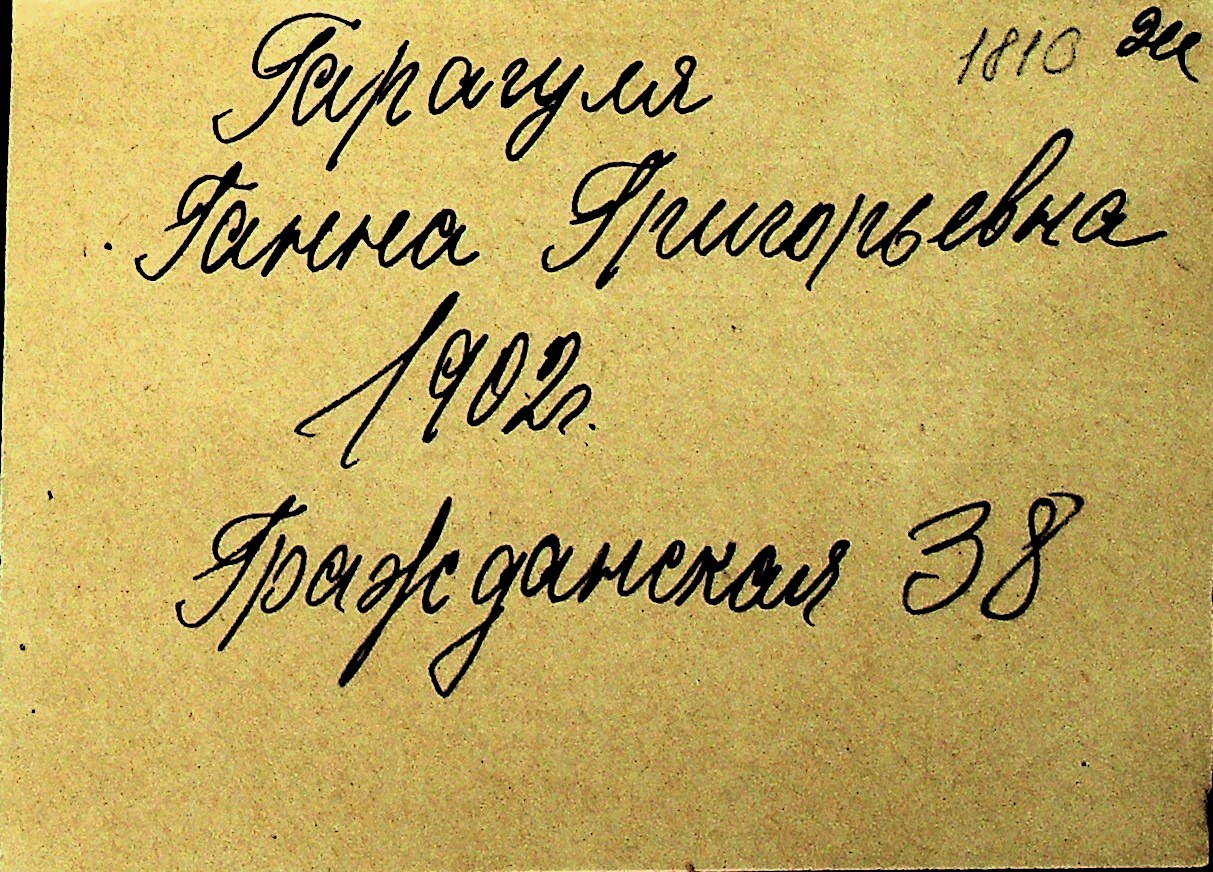 1810
Гарагуля
Ганна Григорьевна
1902г.
Гражданская 38